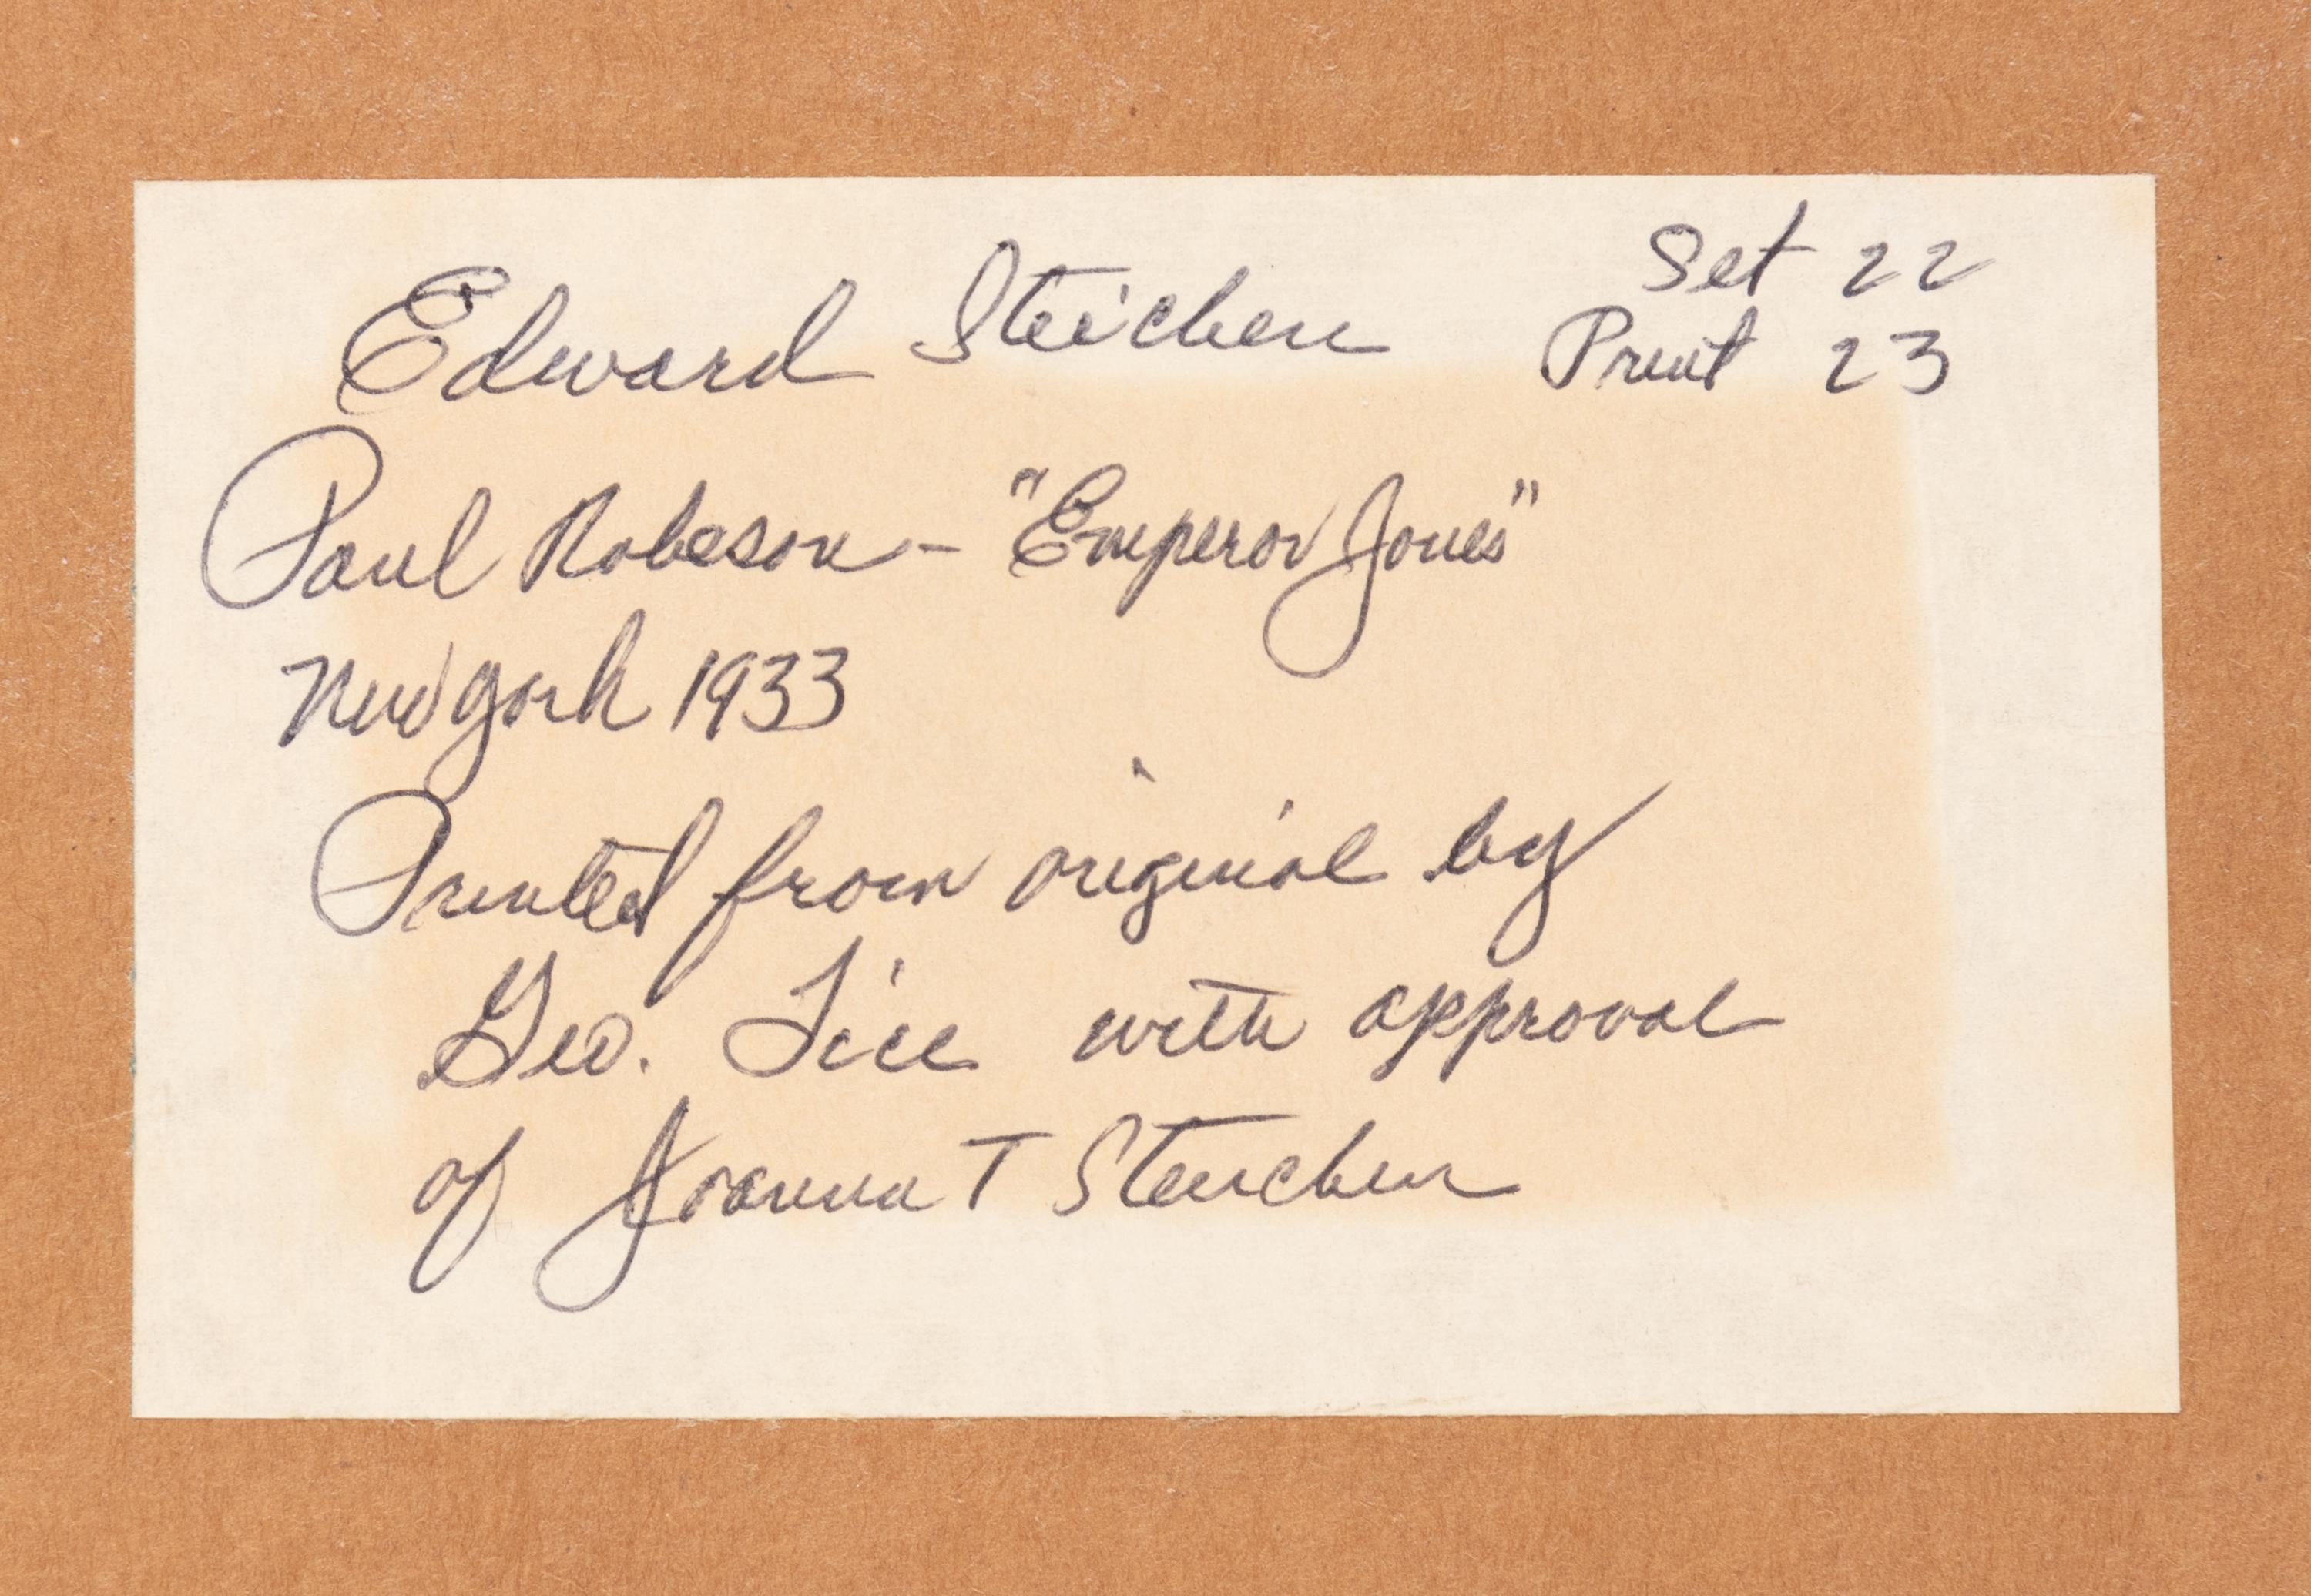 Edward Steichen
Set 22
Print 23
Paul Robeson - "Emperor Jones"
New York 1933
Printed from original by
Geo. Tice with approval
of Joanna T Steichen